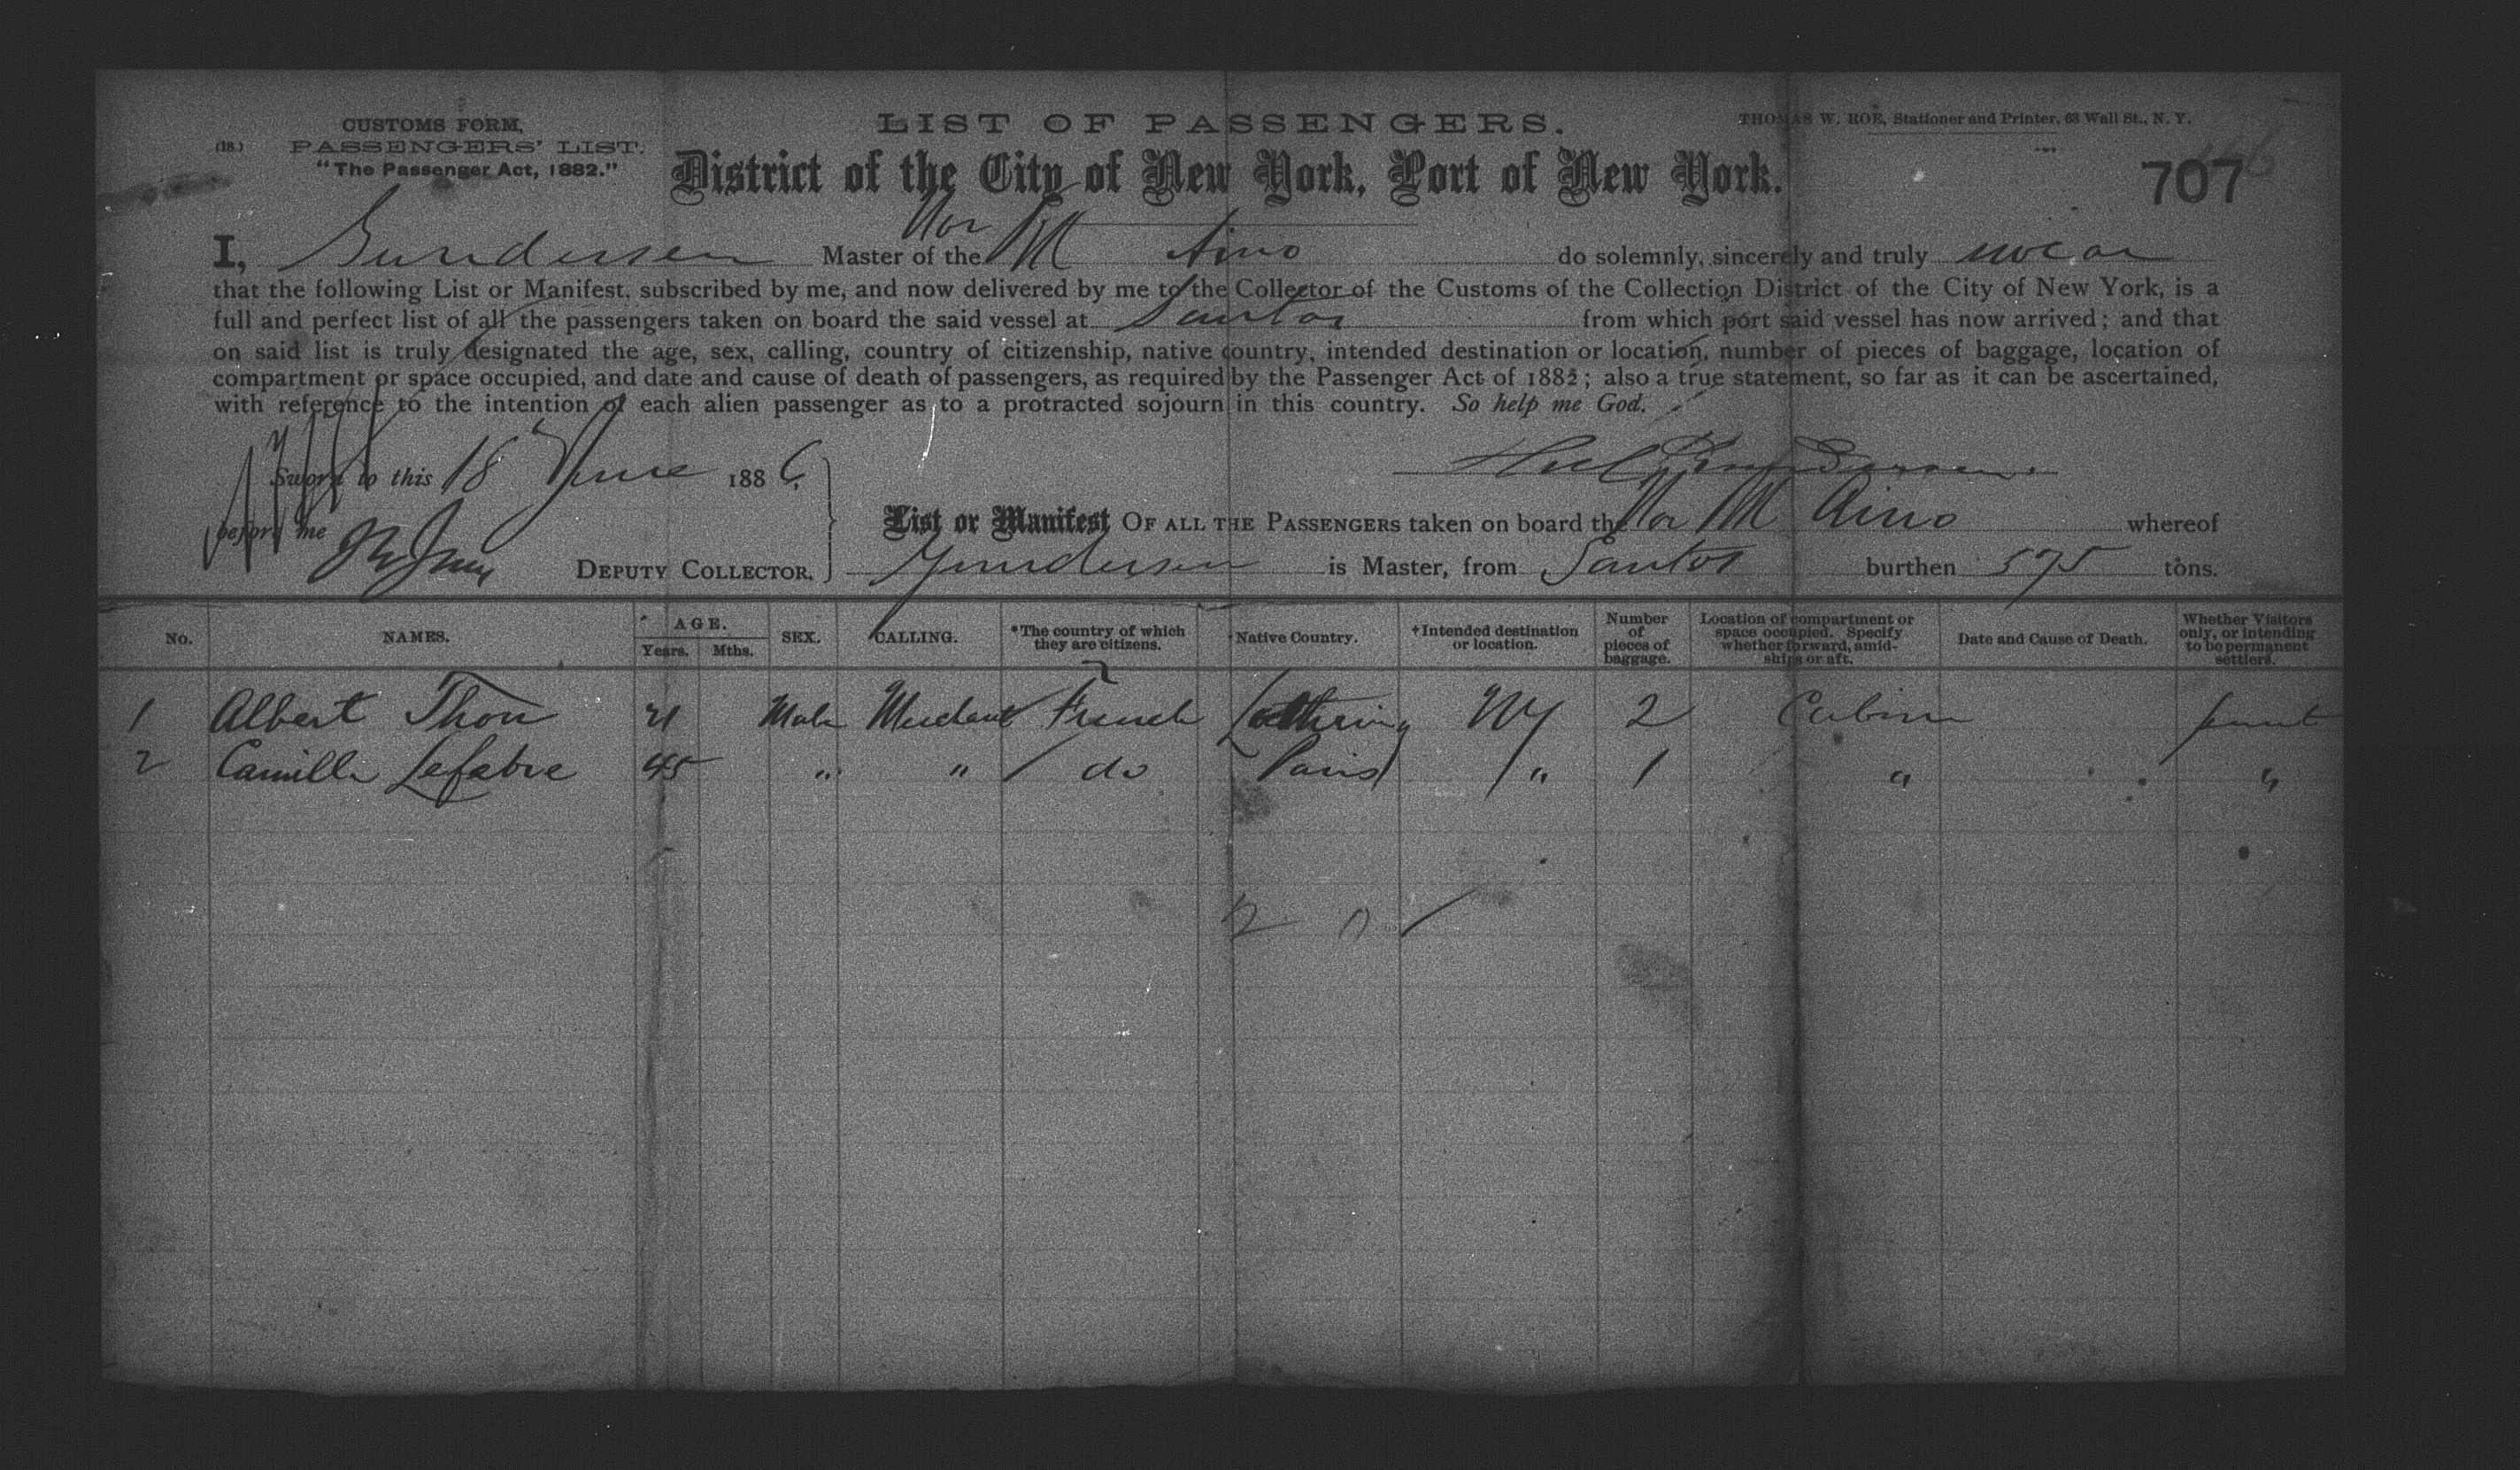 CUSTOMS FORM,
(18.) PASSENGERS' LIST.
"The Passenger Act, 1882."
LIST OF PASSENGERS.
THOMAS W. ROE, Stationer and Printer, 63 Wall St., N. Y.
District of the City of New York, Port of New York.
707
I, Gundersen Master of the Nor Bk Aino do solemnly, sincerely and truly swear
that the following List or Manifest, subscribed by me, and now delivered by me to the Collector of the Customs of the Collection District of the City of New York, is a
full and perfect list of all the passengers taken on board the said vessel at Santos from which port said vessel has now arrived; and that
on said list is truly designated the age, sex, calling, country of citizenship, native country, intended destination or location, number of pieces of baggage, location of
compartment or space occupied, and date and cause of death of passengers, as required by the Passenger Act of 1882; also a true statement, so far as it can be ascertained,
with reference to the intention of each alien passenger as to a protracted sojourn in this country. So help me God.
Sworn to this 18 June 1886,
before me
DEPUTY COLLECTOR.
List or Manifest OF ALL THE PASSENGERS taken on board the Nor Bk Aino whereof
Gundersen is Master, from Santos burthen 575 tons.
No. NAMES. AGE. Years. Mths. SEX. CALLING. *The country of which they are citizens. Native Country. †Intended destination or location. Number of pieces of baggage. Location of compartment or space occupied. Specify whether forward, amidships or aft. Date and Cause of Death. Whether Visitors only, or intending to be permanent settlers.
1 Albert Thon 21 Male Merchant French Lothring NY 2 Cabin
2 Camille Lefabre 45 " " do Paris " 1 " "